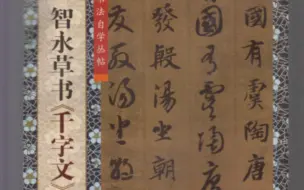 书法自学丛帖
智永草书《千字文》
國有虞陶唐
國有虞陶唐
發殷湯坐朝
發殷湯坐朝